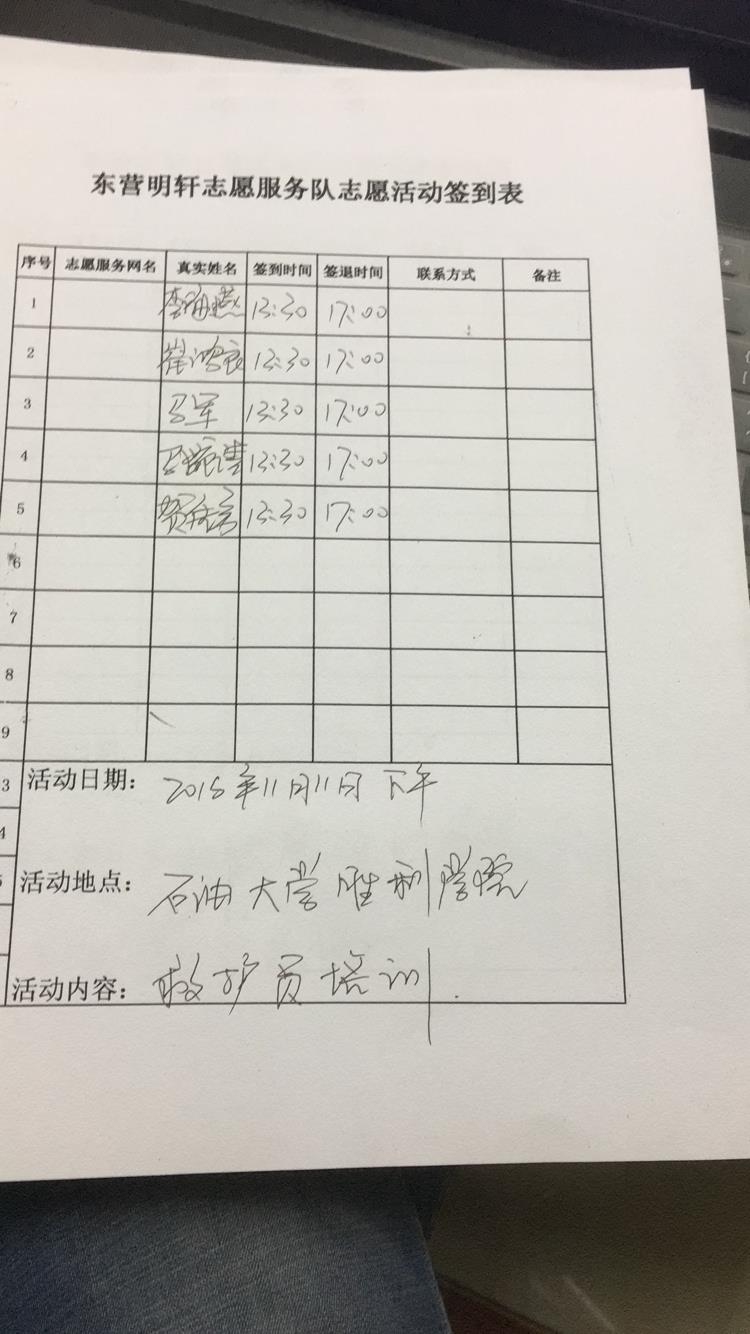 东营明轩志愿服务队志愿活动签到表
序号 志愿服务网名 真实姓名 签到时间 签退时间 联系方式 备注
1 李海燕 13:30 17:00
2 崔鸿 13:30 17:00
3 马军 13:30 17:00
4 13:30 17:00
5 贺 13:30 17:00
6
7
8
9
3 活动日期: 2018年11月11日 下午
4
5 活动地点: 石油大学胜利学院
活动内容: 救护员培训